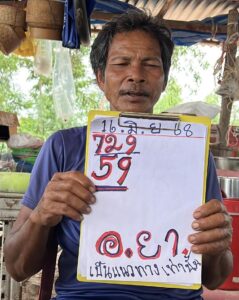 16 มิ.ย 68
729
59
อ.ยา.
เป็นแนวทางเท่านั้น